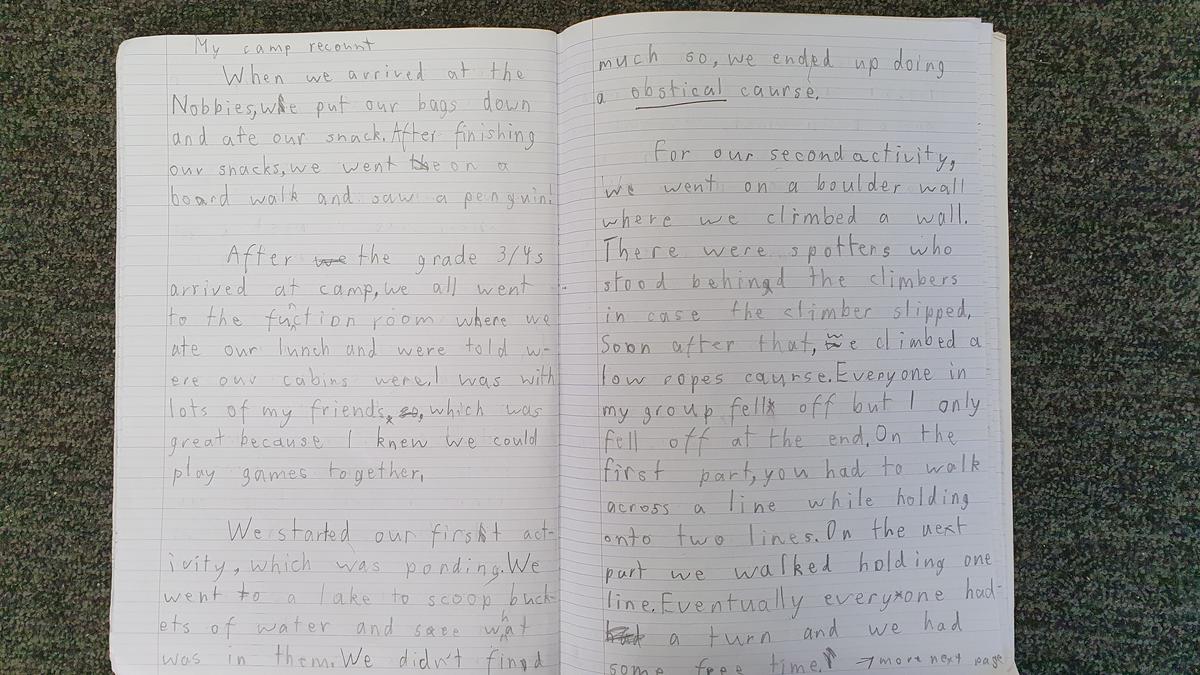 My camp recount
When we arrived at the
Nobbies, we put our bags down
and ate our snack. After finishing
our snacks, we went on a
board walk and saw a penguin!
After we the grade 3/4s
arrived at camp, we all went
to the function room where we
ate our lunch and were told w-
ere our cabins were. I was with
lots of my friends, so, which was
great because I knew we could
play games together.
We started our first act-
ivity, which was ponding. We
went to a lake to scoop buck-
ets of water and see what
was in them. We didn't find
much so, we ended up doing
a obstical caurse.
For our second activity,
we went on a boulder wall
where we climbed a wall.
There were spotters who
stood behind the climbers
in case the climber slipped.
Soon after that, we climbed a
low ropes caurse. Everyone in
my group fell off but I only
fell off at the end. On the
first part, you had to walk
across a line while holding
onto two lines. On the next
part we walked holding one
line. Eventually everyone had
had a turn and we had
some free time. → more next page